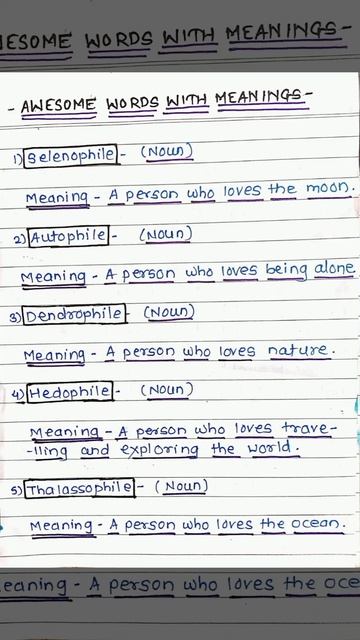 ESOME WORDS WITH MEANINGS-
- AWESOME WORDS WITH MEANINGS-
1) Selenophile - (Noun)
Meaning - A person who loves the moon.
2) Autophile - (Noun)
Meaning - A person who loves being alone
3) Dendrophile - (Noun)
Meaning - A person who loves nature.
4) Hedophile - (Noun)
Meaning - A person who loves trave-
-lling and exploring the world.
5) Thalassophile - (Noun)
Meaning - A person who loves the ocean.
eaning - A person who loves the oce